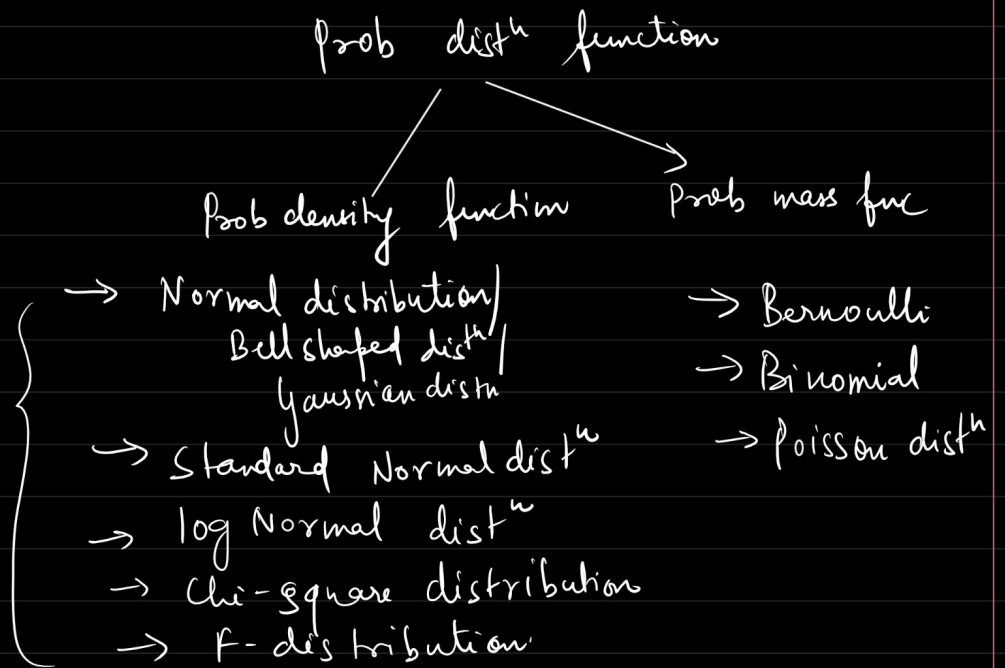 Prob distⁿ function
Prob density function
Prob mass func
→ Normal distribution/
Bell shaped distⁿ/
Gaussian distn
→ Standard Normal distⁿ
→ log Normal distⁿ
→ Chi-square distribution
→ F-distribution
→ Bernoulli
→ Binomial
→ Poisson distⁿ